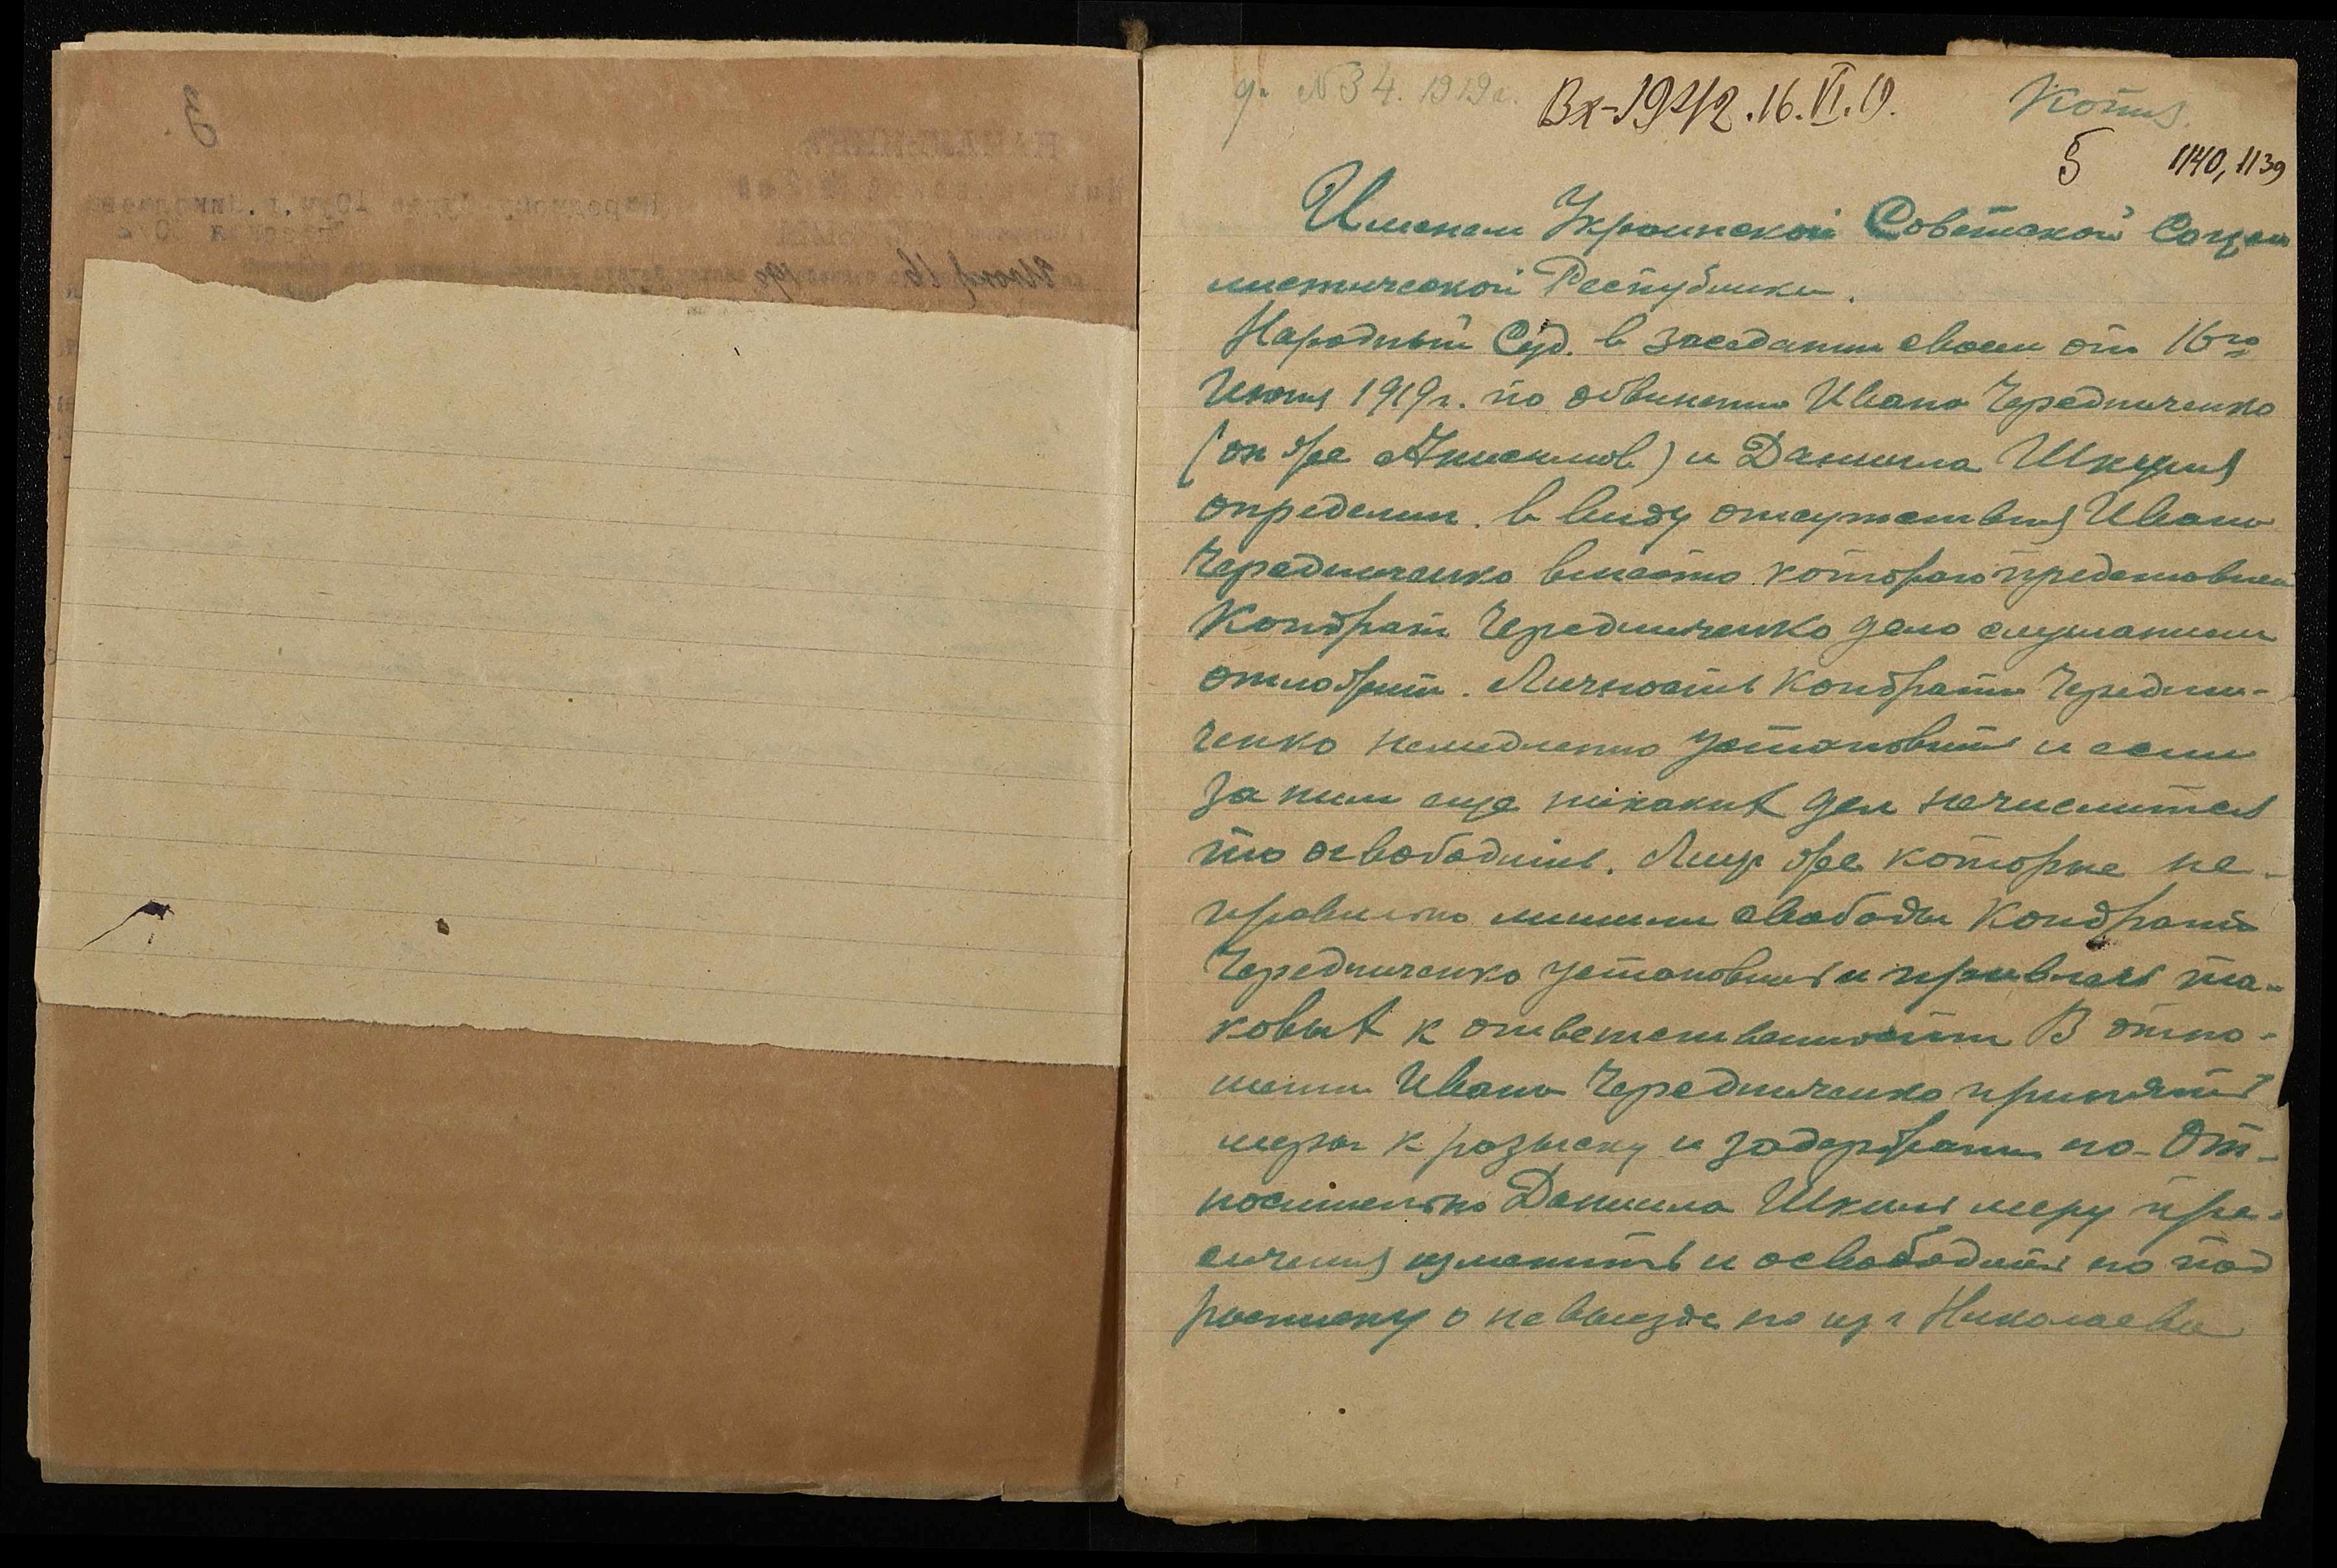 д. №34. 1919г.
Вх-1942.16.VI.19.
Копия.
5
1140, 1139
Именем Украинской Советской Социа
листической Республики.
Народный Суд. в заседании своем от 16го
Июня 1919г. по обвинению Ивана Чередниченко
(он же Анисимов) и Даниила Шкуля
определил. в виду отсутствия Ивана
Чередниченко вместо которого представлен
Кондрат Чередниченко дело слушанием
отложить. Личность Кондрата Чередни-
ченко немедленно установить и если
за ним еще никаких дел нечислится
то освободить. Лиц же которые не-
правильно лишили свободы Кондрата
Чередниченко установить и привлечь та-
ковых к ответственности В отно-
шении Ивана Чередниченко принять
меры к розыску и задержанию его. От-
носительно Даниила Шкиля меру пре-
сечения изменить и освободить его под
расписку о невыезде его из г Николаева
3.
НАЧАЛЬНИКЪ
Народному Суду 10 уч. г. Николаева
Июня 16